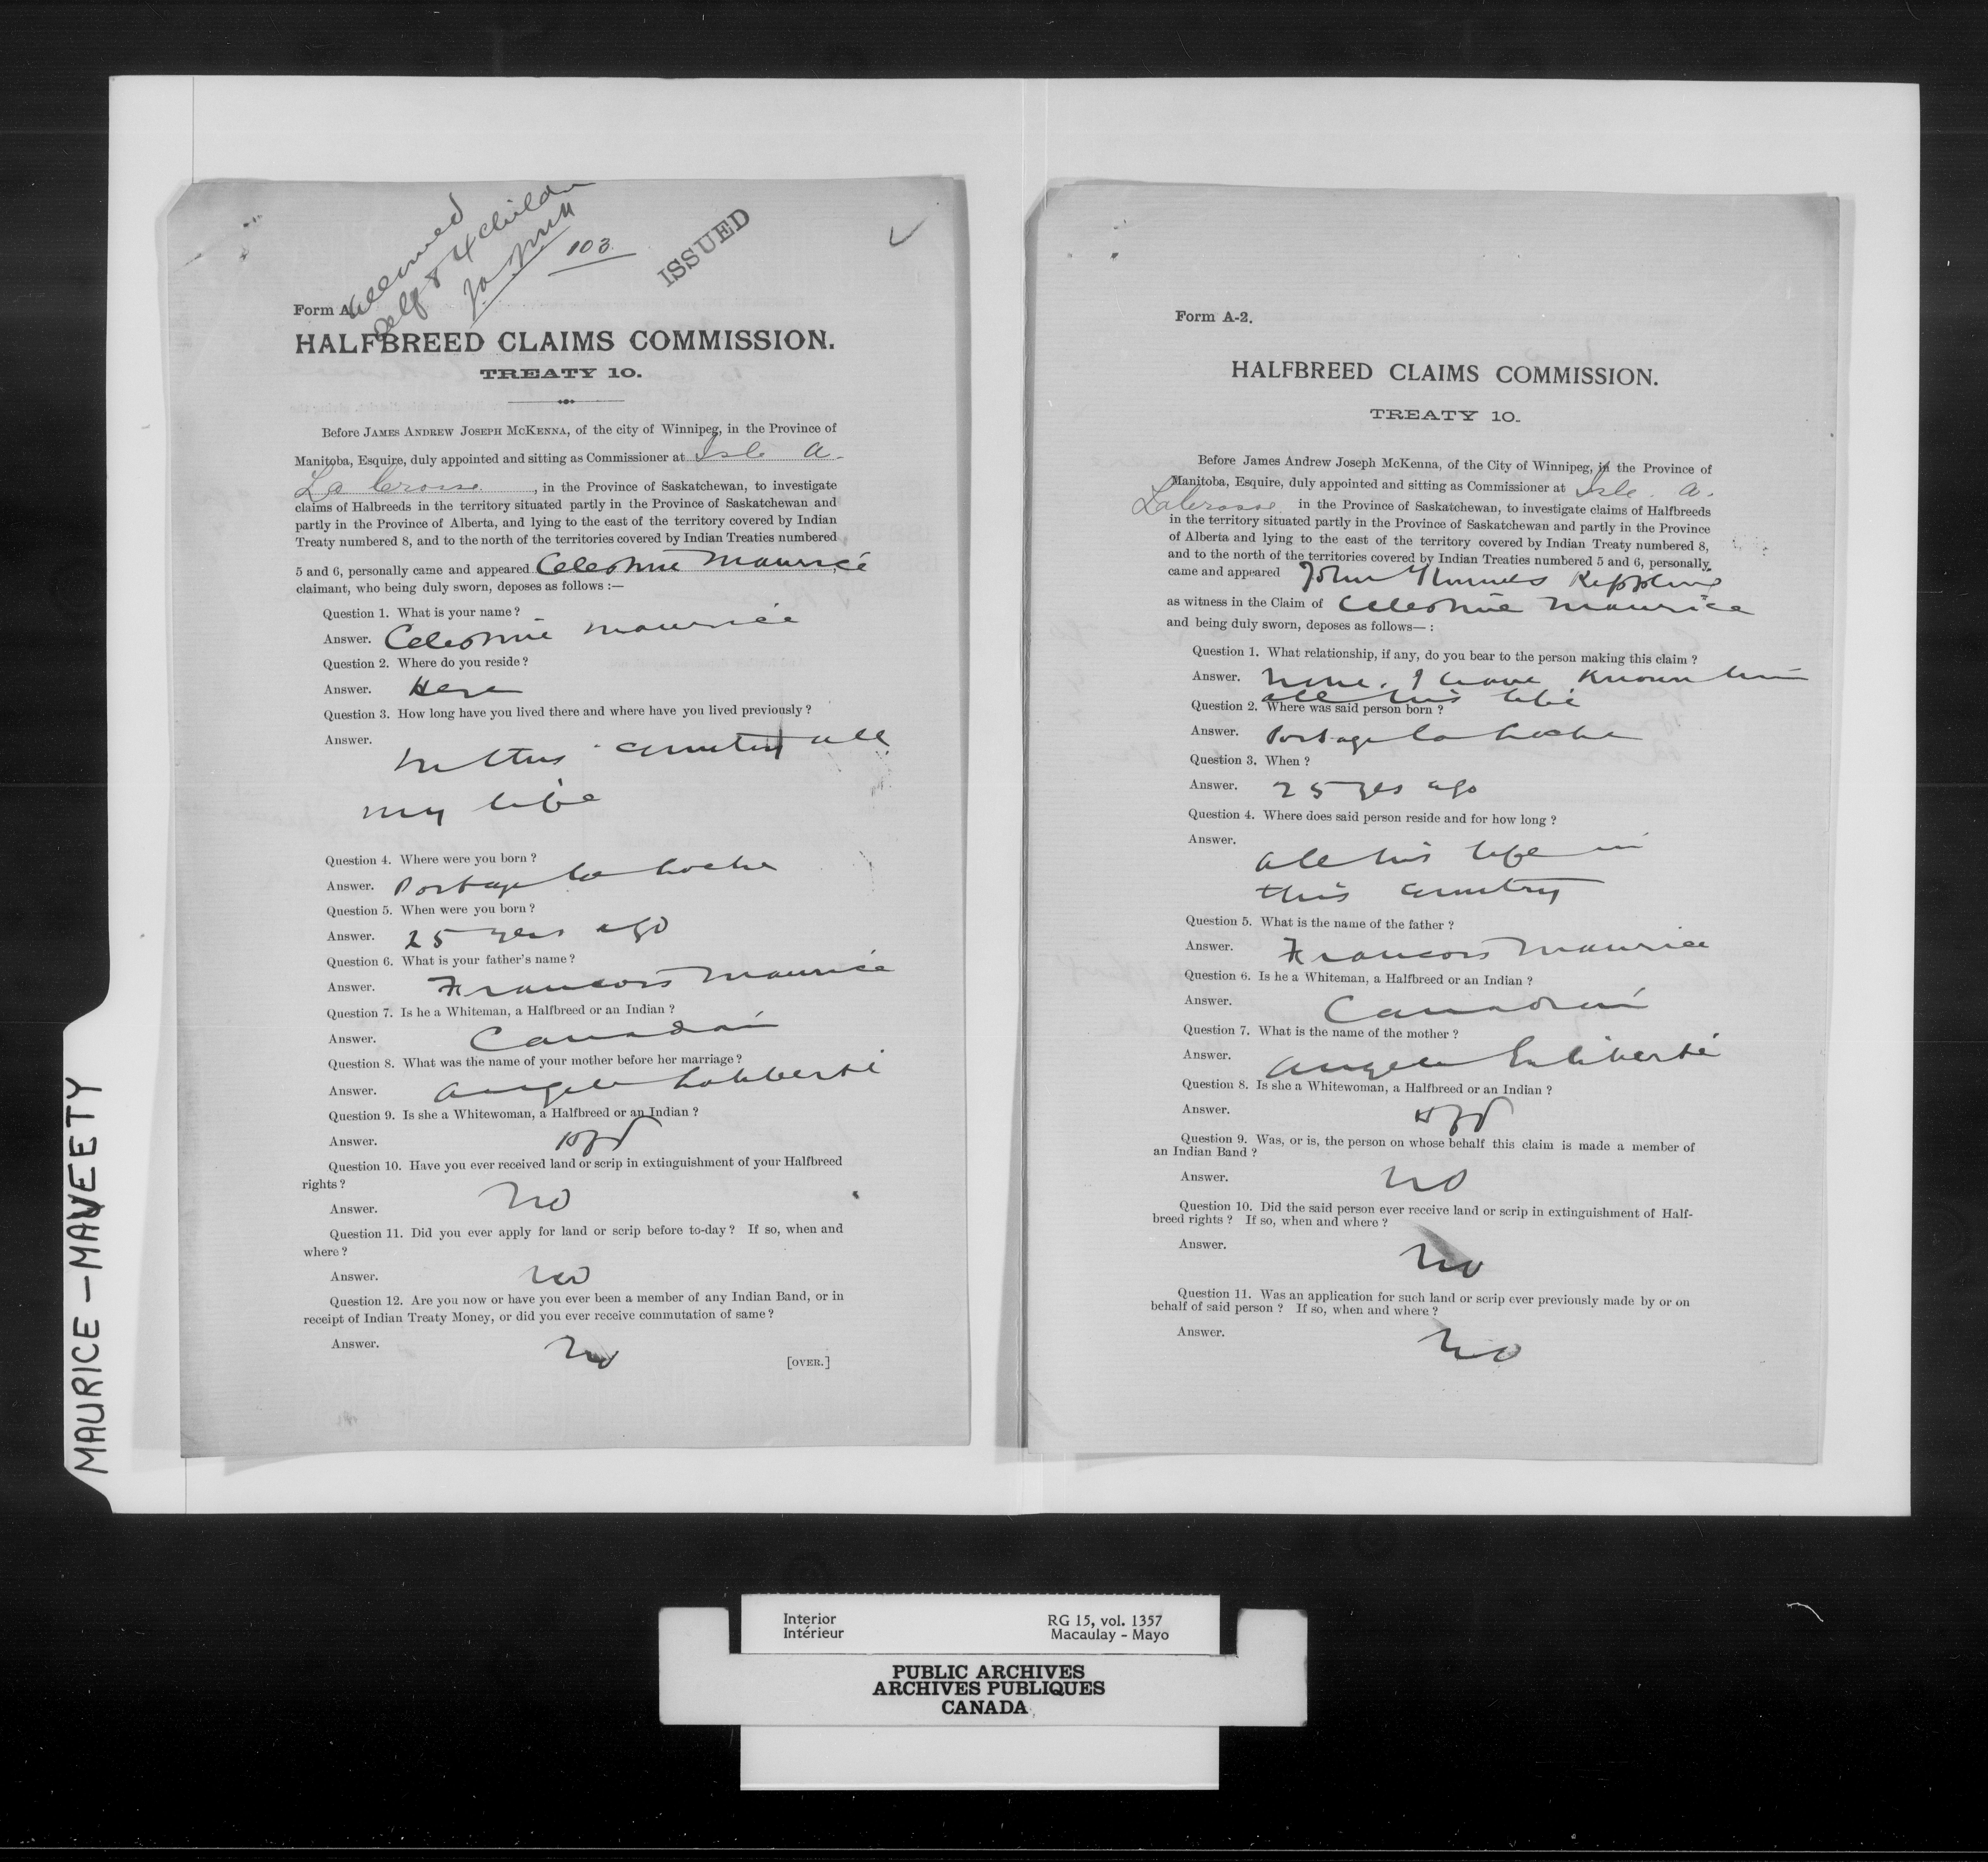 MAURICE - MAVEETY
allowed
self & 4 children
JAJMcK
103
ISSUED
Form A
HALFBREED CLAIMS COMMISSION.
TREATY 10.
Before JAMES ANDREW JOSEPH MCKENNA, of the city of Winnipeg, in the Province of
Manitoba, Esquire, duly appointed and sitting as Commissioner at Isle a
La Crosse, in the Province of Saskatchewan, to investigate
claims of Halfbreeds in the territory situated partly in the Province of Saskatchewan and
partly in the Province of Alberta, and lying to the east of the territory covered by Indian
Treaty numbered 8, and to the north of the territories covered by Indian Treaties numbered
5 and 6, personally came and appeared Celestine Maurice
claimant, who being duly sworn, deposes as follows :—
Question 1. What is your name ?
Answer. Celestine Maurice
Question 2. Where do you reside ?
Answer. Here
Question 3. How long have you lived there and where have you lived previously ?
Answer.
In this country all
my life
Question 4. Where were you born ?
Answer. Portage la Loche
Question 5. When were you born ?
Answer. 25 years ago
Question 6. What is your father's name ?
Answer. Francois Maurice
Question 7. Is he a Whiteman, a Halfbreed or an Indian ?
Answer. Canadian
Question 8. What was the name of your mother before her marriage ?
Answer. Angele Laliberté
Question 9. Is she a Whitewoman, a Halfbreed or an Indian ?
Answer. Hfd
Question 10. Have you ever received land or scrip in extinguishment of your Halfbreed
rights ?
Answer. No
Question 11. Did you ever apply for land or scrip before to-day ? If so, when and
where ?
Answer. No
Question 12. Are you now or have you ever been a member of any Indian Band, or in
receipt of Indian Treaty Money, or did you ever receive commutation of same ?
Answer. No
[OVER.]
Form A-2.
HALFBREED CLAIMS COMMISSION.
TREATY 10.
Before James Andrew Joseph McKenna, of the City of Winnipeg, in the Province of
Manitoba, Esquire, duly appointed and sitting as Commissioner at Isle. a.
Lacrosse in the Province of Saskatchewan, to investigate claims of Halfbreeds
in the territory situated partly in the Province of Saskatchewan and partly in the Province
of Alberta and lying to the east of the territory covered by Indian Treaty numbered 8,
and to the north of the territories covered by Indian Treaties numbered 5 and 6, personally
came and appeared John Kippling
as witness in the Claim of Celestine Maurice
and being duly sworn, deposes as follows— :
Question 1. What relationship, if any, do you bear to the person making this claim ?
Answer. None. I have Known him
all his life
Question 2. Where was said person born ?
Answer. Portage la Loche
Question 3. When ?
Answer. 25 yrs ago
Question 4. Where does said person reside and for how long ?
Answer.
all his life in
this country
Question 5. What is the name of the father ?
Answer. Francois Maurice
Question 6. Is he a Whiteman, a Halfbreed or an Indian ?
Answer. Canadian
Question 7. What is the name of the mother ?
Answer. Angele Laliberté
Question 8. Is she a Whitewoman, a Halfbreed or an Indian ?
Answer. Hfd
Question 9. Was, or is, the person on whose behalf this claim is made a member of
an Indian Band ?
Answer. No
Question 10. Did the said person ever receive land or scrip in extinguishment of Half-
breed rights ? If so, when and where ?
Answer. No
Question 11. Was an application for such land or scrip ever previously made by or on
behalf of said person ? If so, when and where ?
Answer. No
Interior RG 15, vol. 1357
Intérieur Macaulay - Mayo
PUBLIC ARCHIVES
ARCHIVES PUBLIQUES
CANADA